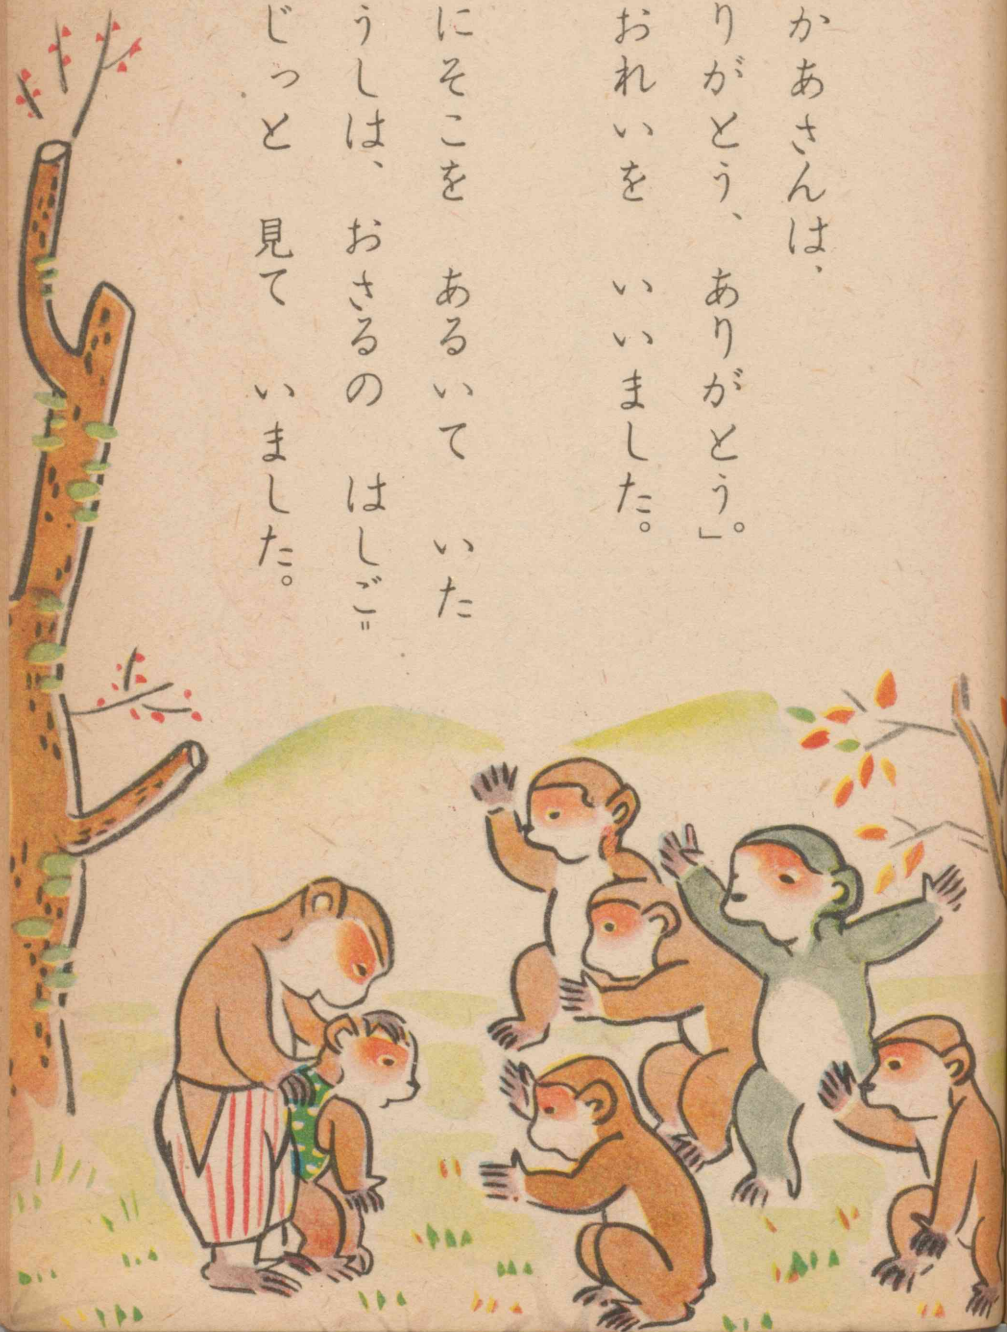 かあさんは、
りがとう、ありがとう。」
おれいを いいました。
にそこを あるいて いた
うしは、おさるの はしご〟
じっと 見て いました。